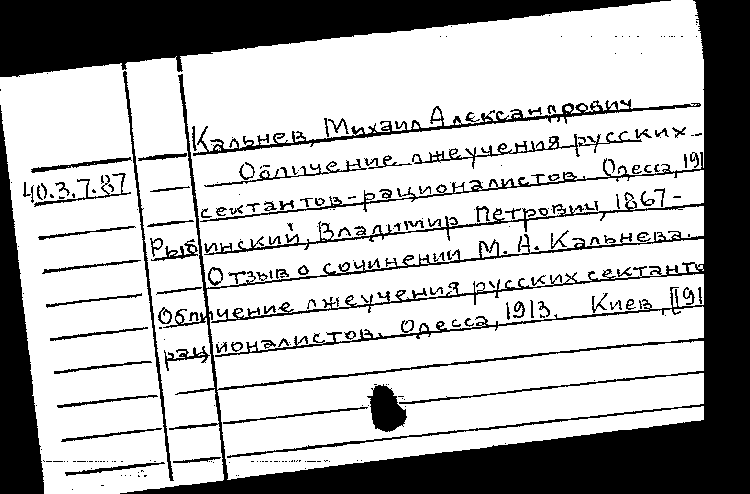 Кальнев, Михаил Александрович
Обличение лжеучения русских
40.3.7.87
сектантов-рационалистов. Одесса, 191
Рыбинский, Владимир Петрович, 1867-
Отзыв о сочинении М. А. Кальнева.
Обличение лжеучения русских сектанто
рационалистов. Одесса, 1913. Киев, [191